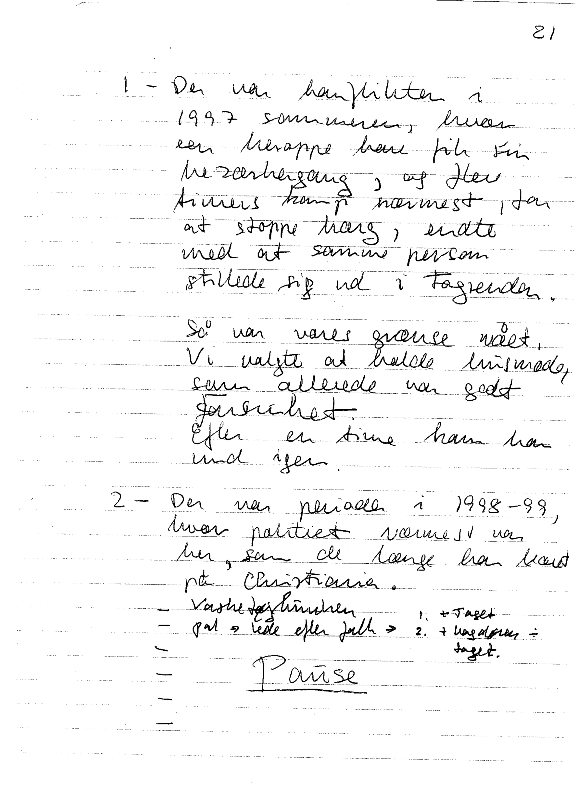 21
1 - Der var konflikten i
1997 sommeren, hvor
een beroppe have fik sin
bezærkergang, og flere
timers kamp nærmest, for
at stoppe ham, endte
med at samme person
stillede sig ud i Tagrenden.
Så var vores grænse nået.
Vi valgte at holde husmøde,
som allerede var godt
forsinket.
Efter en time kom han
ind igen.
2 - Der var perioder i 1998-99,
hvor politiet nærmest var
her, som de længe har
på Christiania.
Vaske
går → lede efter folk → 1. + Taget
2. + ÷
taget.
Pause